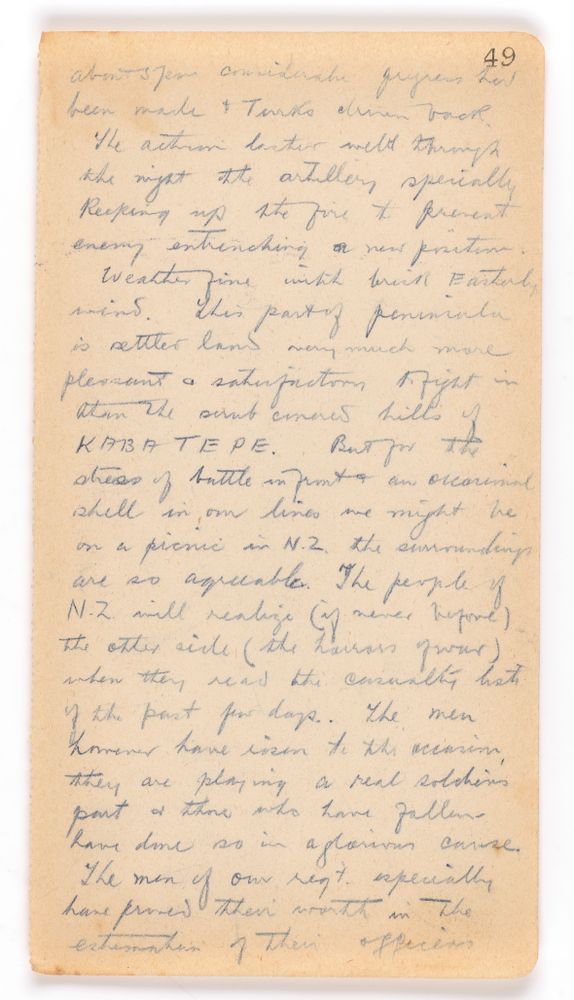 49
about 5 pm considerable progress had
been made & Turks driven back.
The action lasted well through
the night the artillery specially
Keeping up the fire to prevent
enemy entrenching a new position.
Weather fine with brisk Easterly
wind. This part of peninsula
is settled land very much more
pleasant & satisfactory to fight in
than the scrub covered hills of
KABA TEPE. But for the
stress of battle in front & an occasional
shell in our lines we might be
on a picnic in N.Z. the surroundings
are so agreeable. The people of
N.Z. will realize (if never before)
the other side (the horrors of war)
when they read the casualty lists
of the past few days.. The men
however have risen to the occasion,
they are playing a real soldiers
part & those who have fallen
have done so in a glorious cause.
The men of our regt. especially
have proved their worth in the
estimation of their officers